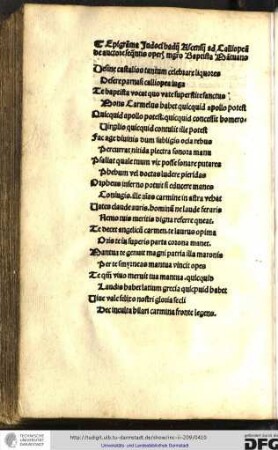 Epigrāma Iudoci badij Ascensij ad Calliopen
de auctore sequētis operis magro Baptista Mātuano
Desine castalios tantum celebrare liquores
Desere parnasi calliopea iuga
Te baptista vocat quo vate superstite sanctus
Mons Carmelus habet quicquid apollo potest
Quicquid apollo potest. quicquid concessit homero
Virgilio quicquid contulit ille potest
Fac age diuinis dum subligo oda rebus
Percurrat nitida plectra sonora manu
Psallat quale tuum vix posse sonare putares
Phebum vel doctas ludere pieridas
Orpheus inferno potuit educere manes
Coniugis. ille alto carmine in astra vehat
Vates claude auris. hominū ne laude feraris
Nemo tuis meritis digna referre queat.
Te decet angelicū carmen. te laurus opima
Oris te superis parta corona manet.
Mantua te genuit magni patria illa maronis
Per te smyrneas mantua vincit opes
Te qm viuo meruit tua mantua quicquid
Laudis habet latium grecia quicquid habet
Uiue vale felix o nostri gloria secli
Hec inculta hilari carmina fronte legens.
TECHNISCHE UNIVERSITÄT DARMSTADT
http://tudigit.ulb.tu-darmstadt.de/show/inc-ii-209/0420
Universitäts- und Landesbibliothek Darmstadt
gefördert durch die
DFG